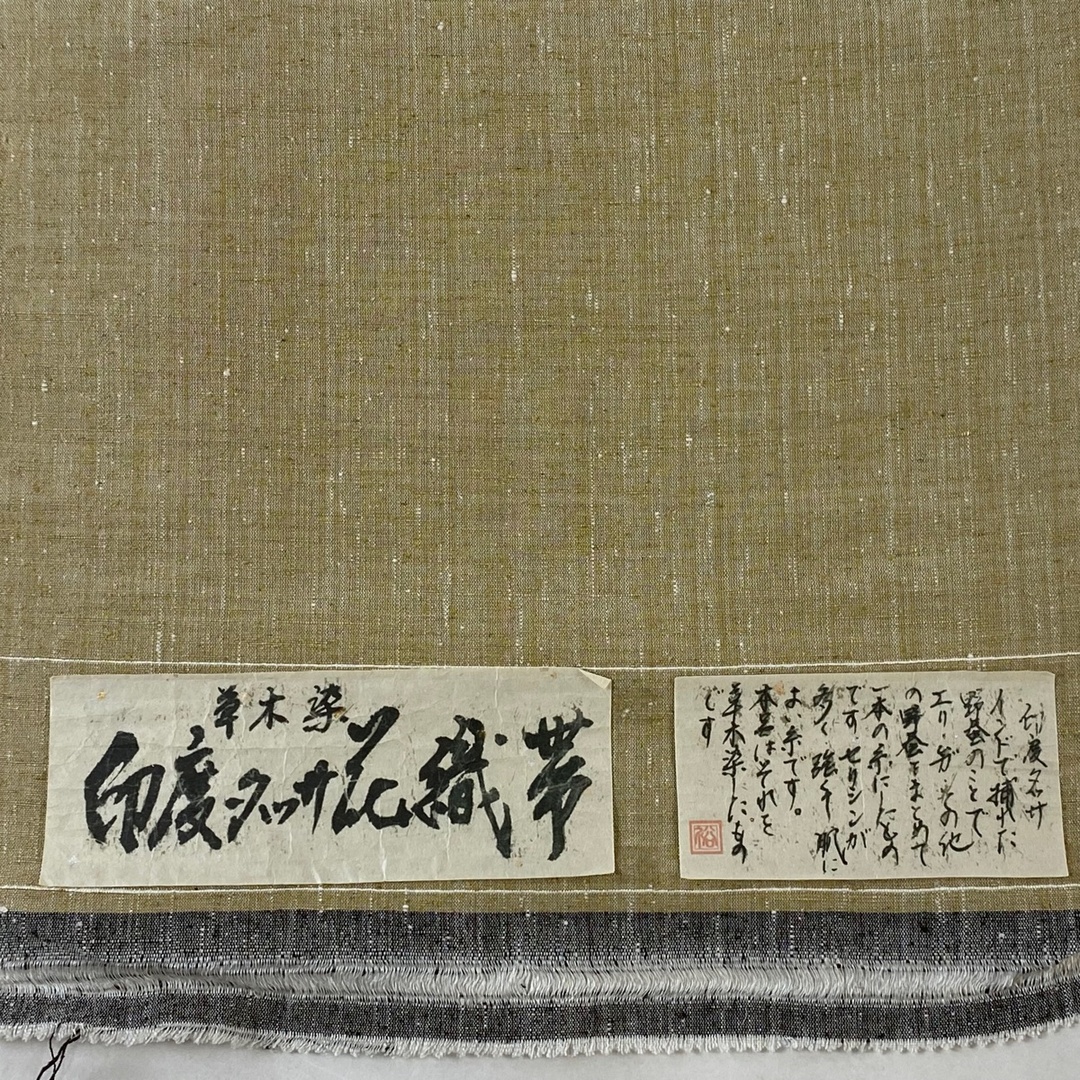 草木染
印度タッサ花織帯
印度タッサ
インドで捕れた
野蚕のことで
エリ蚕その他
の野蚕をまとめて
一本の糸にしたもの
です。セリシンが
多く強く肌に
よい糸です。
本品はそれを
草木染したもの
です
裕